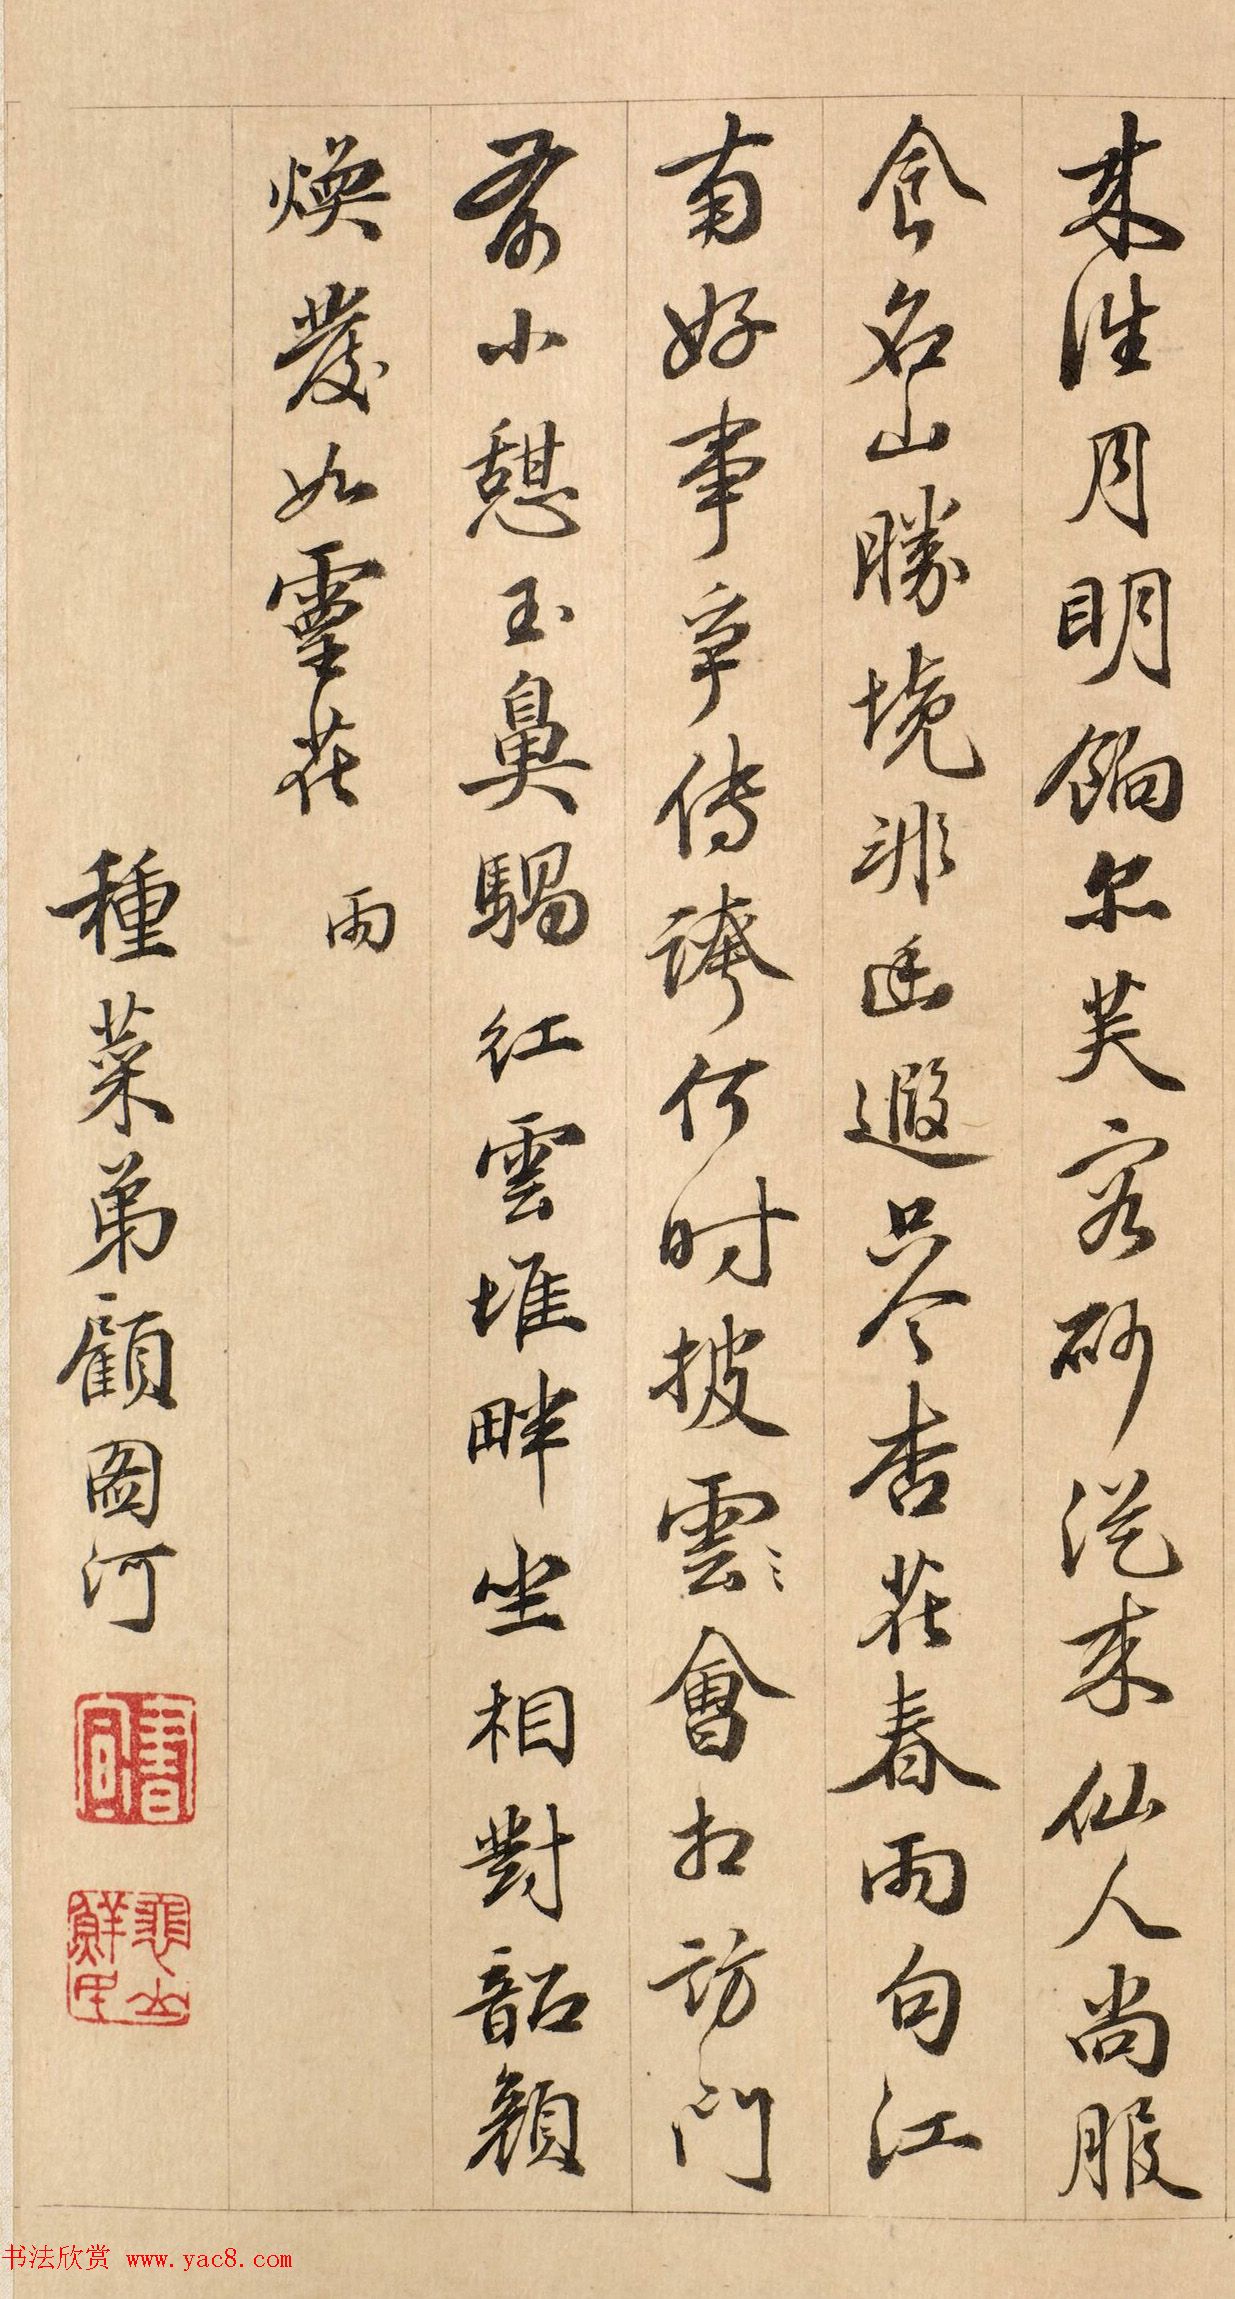 来往月明餉尔芙容砂從来仙人尚服
食名山勝境非遥遐只今杏花春雨句江
南好事爭傳誇何时披雲會相訪門
前小憩玉鼻騧紅雲堆畔坐相對韶顏
煥發如靈花 雨
種菜弟顧圖河
书法欣赏 www.yac8.com